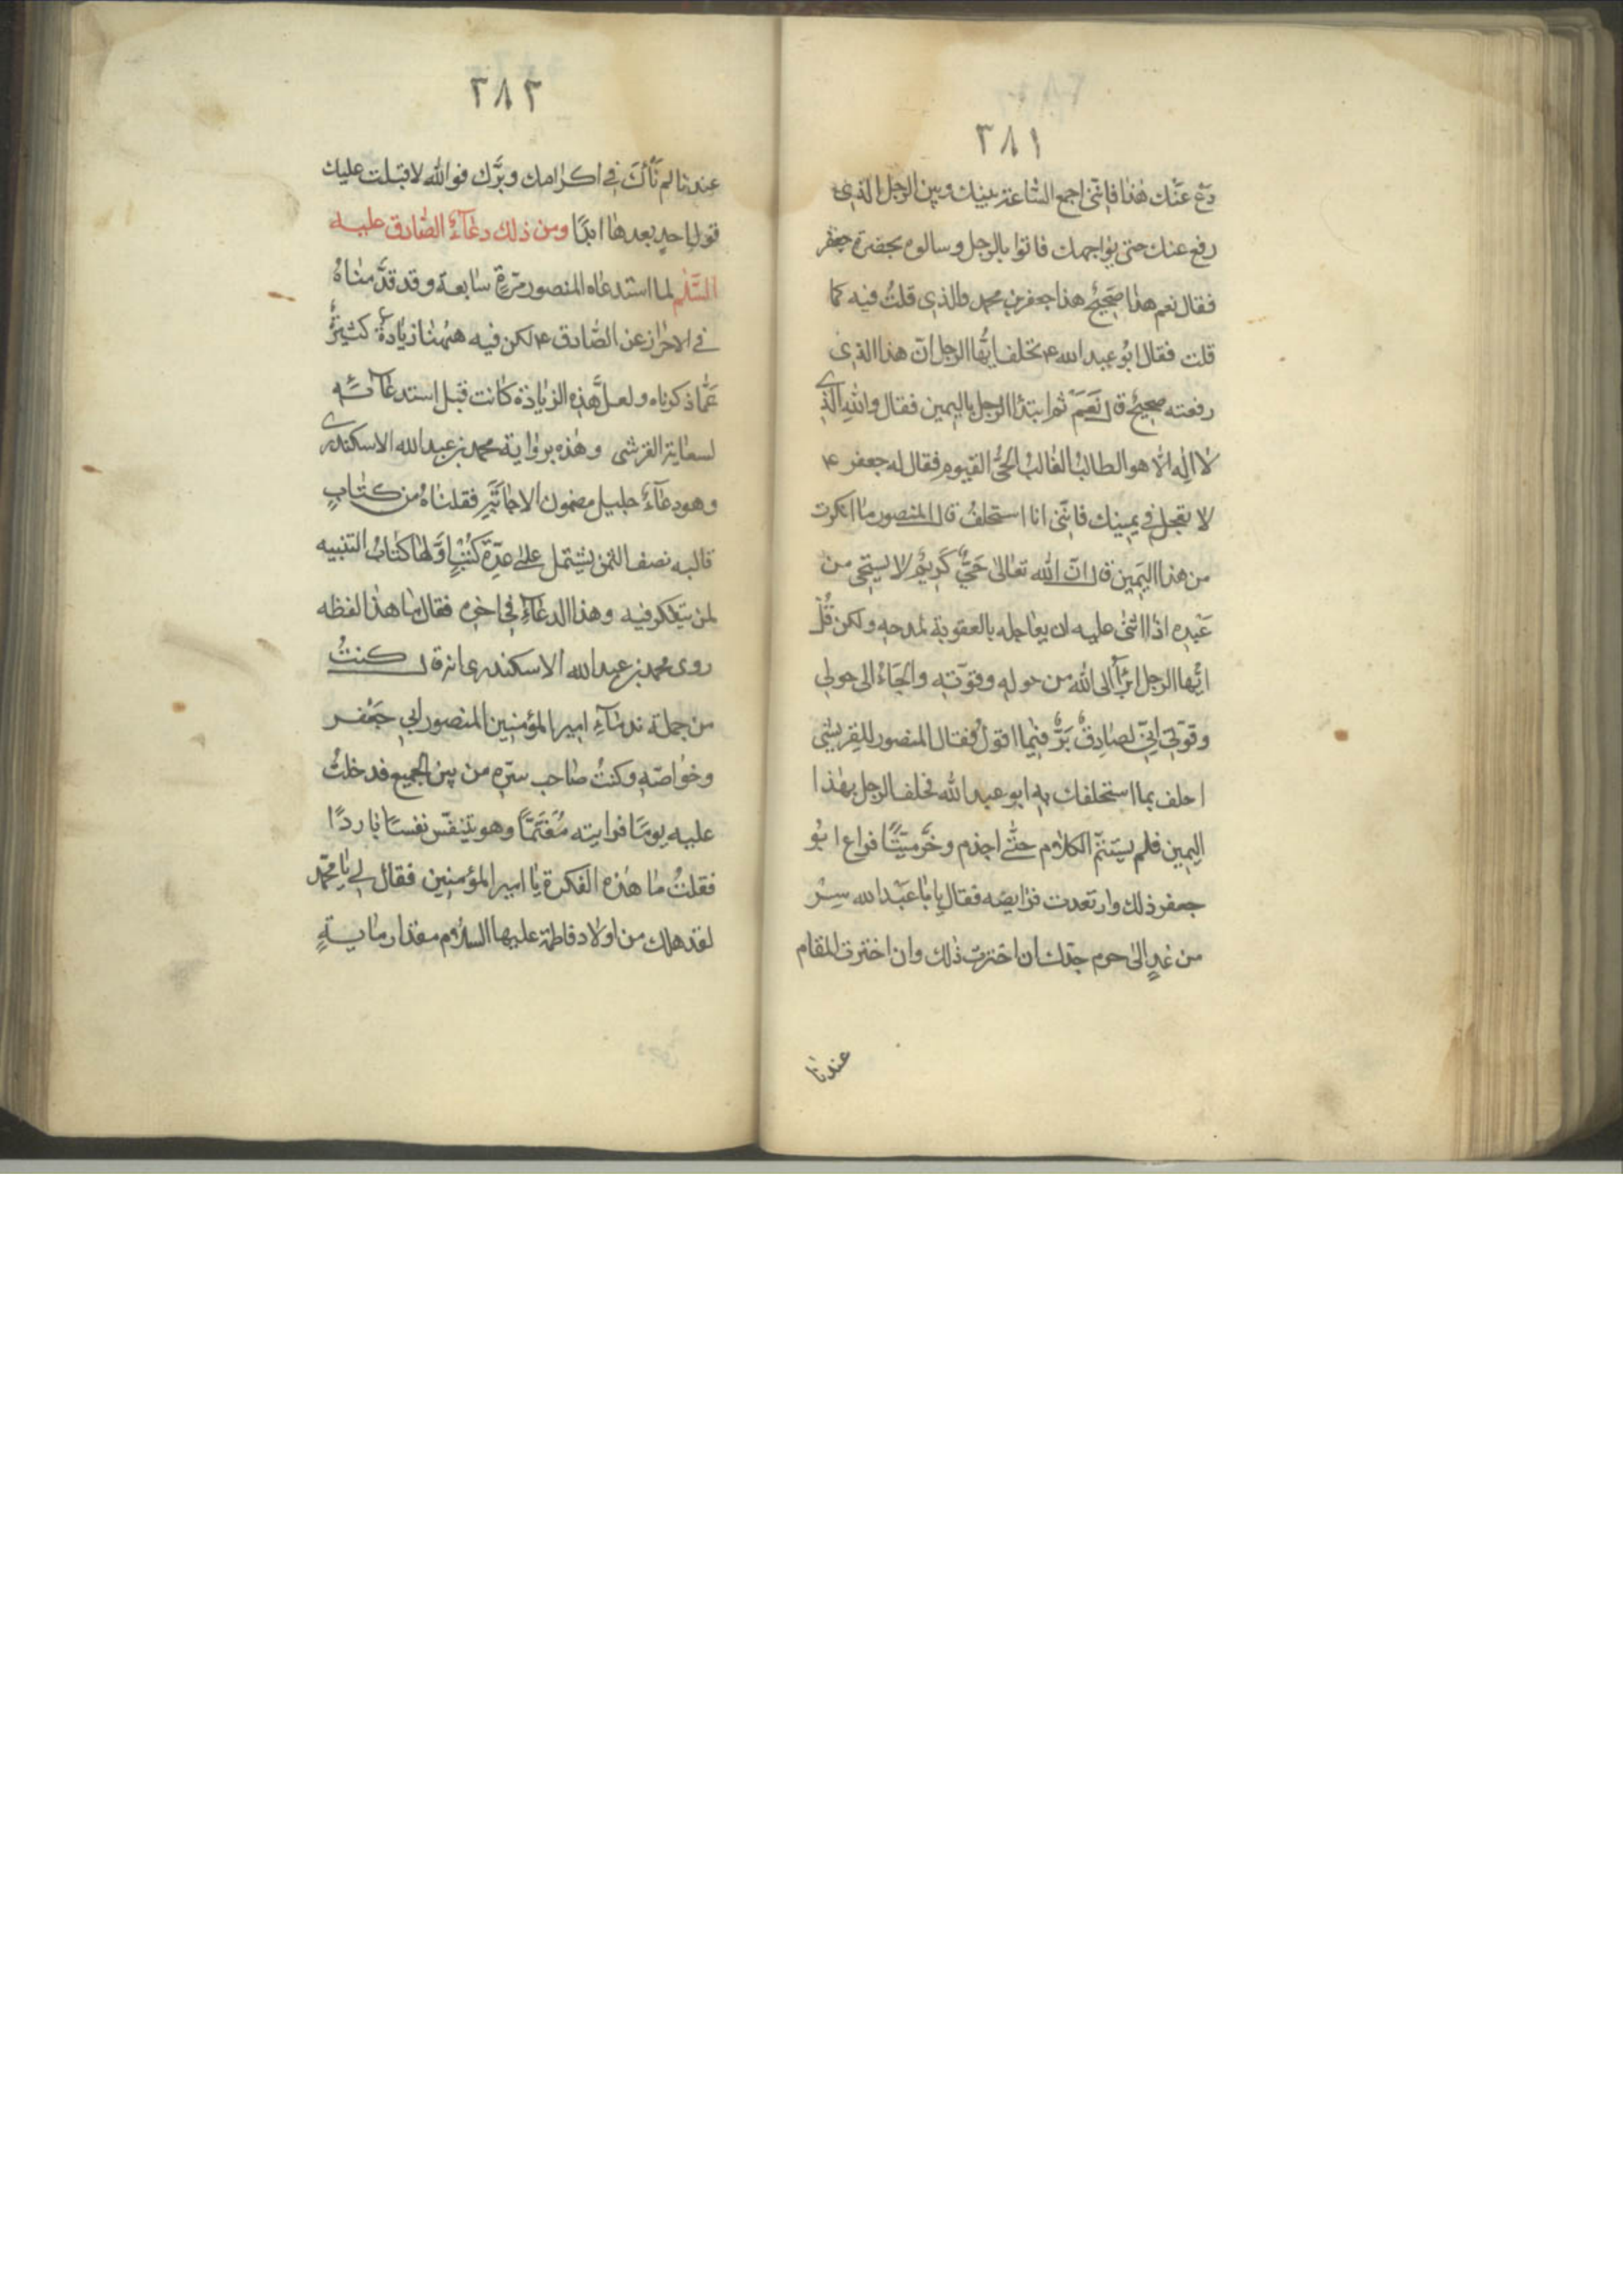 ٣٨١
دَع عَنْك هٰذا فَاِنّنى اجمع السّاعة بينك وبين الرجل الذى
رفع عنك حتى يواجهك فاتوا بالرجل وسالوه بحضرة جعفر
فقال نعم هذا صَحيحٌ هذا جعفر بن محمد والذى قلتُ فيه كما
قلت فقال ابُو عبد الله ۴ تحلف ايُّها الرجل انّ هذا الذى
رفعته صحيحٌ قال نَعَمْ ثم ابتدأ الرجل باليمين فقال والله الذى
لا اله الّا هو الطالبُ الغالبُ الحىُّ القيوم فقال له جعفر ۴
لا تعجل فى يمينك فانّنى انا استحلفُ قال المنصور ما انكرت
من هذا اليَمين قال انّ الله تعالىٰ حَىٌّ كَريمٌ لا يستحى من
عَبْده اذا اثنى عليه ان يعاجله بالعقوبة لمدحه ولكن قُلْ
ايُّها الرجل ابْرَأُ الى الله من حوله وقوّته والجَاءُ الى حولى
وقوّتى اِنّى لصَادِقٌ بَرٌّ فيما اقول فقال المنصور للقريشى
احلف بما استحلفك به ابو عبد الله فحلف الرجل بهٰذا
اليمين فلم يستتمّ الكلام حتّٰى اجذم وخَرَّ ميّتًا فراع ابُو
جعفر ذلك وارتعدت فرايصه فقال يا ابا عَبْد الله سِرْ
من غدٍ الىٰ حرم جدّك ان اخترت ذٰلك وان اخترت المقام
عندنا
٣٨٢
عندنا لم نَأْلُ فى اكرامك وبرّك فوالله لا قبلت عليك
قول احدٍ بعدها ابدًا ومن ذلك دعآءُ الصّادق عليه
السَّلٰم لما استدعاه المنصور مرّةً سابعة وقد قدّمناهُ
فى الاحراز عن الصّادق ۴ لكن فيه هٰهُنا زيادةٌ كثيرةٌ
عمّا ذكرناه ولعلّ هذه الزيادة كانت قبل استدعآئه
لسعاية القرشى وهٰذه برواية محمد بن عبد الله الاسكندرى
وهو دعآءٌ جليل مضمون الاجابة نقلناهُ من كتابٍ
قالبه نصف الثمن يشتمل على عدّة كُتُبٍ اوّلها كتابُ التنبيه
لمن يتفكر فيه وهذا الدعآءُ فى اخره فقال ما هذا لفظه
روى محمد بن عبد الله الاسكندرى انه قال كنتُ
من جملة ندمآءِ امير المؤمنين المنصور ابى جَعْفر
وخواصّه وكنتُ صاحب سرّه من بين الجميع فدخلتُ
عليه يومًا فرايته مُغتمًّا وهو يتنفّس نفسًا باردًا
فقلتُ ما هٰذه الفكرة يا امير المؤمنين فقال لى يا محمّد
لقد هلك من اولاد فاطمة عليها السلام مقدار مايةٍ